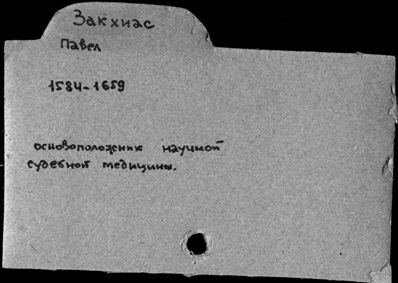 Закхиас
Павел
1584-1659
основоположник научной
судебной медицины.